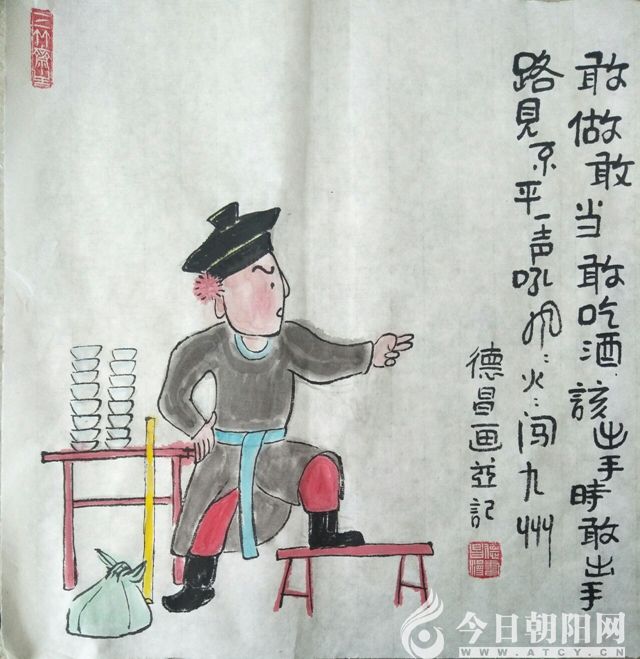 敢做敢当敢吃酒.該出手時敢出手
路見不平一声吼风:火:闯九州
德昌画並記
今日朝阳网
WWW.ATCY.CN